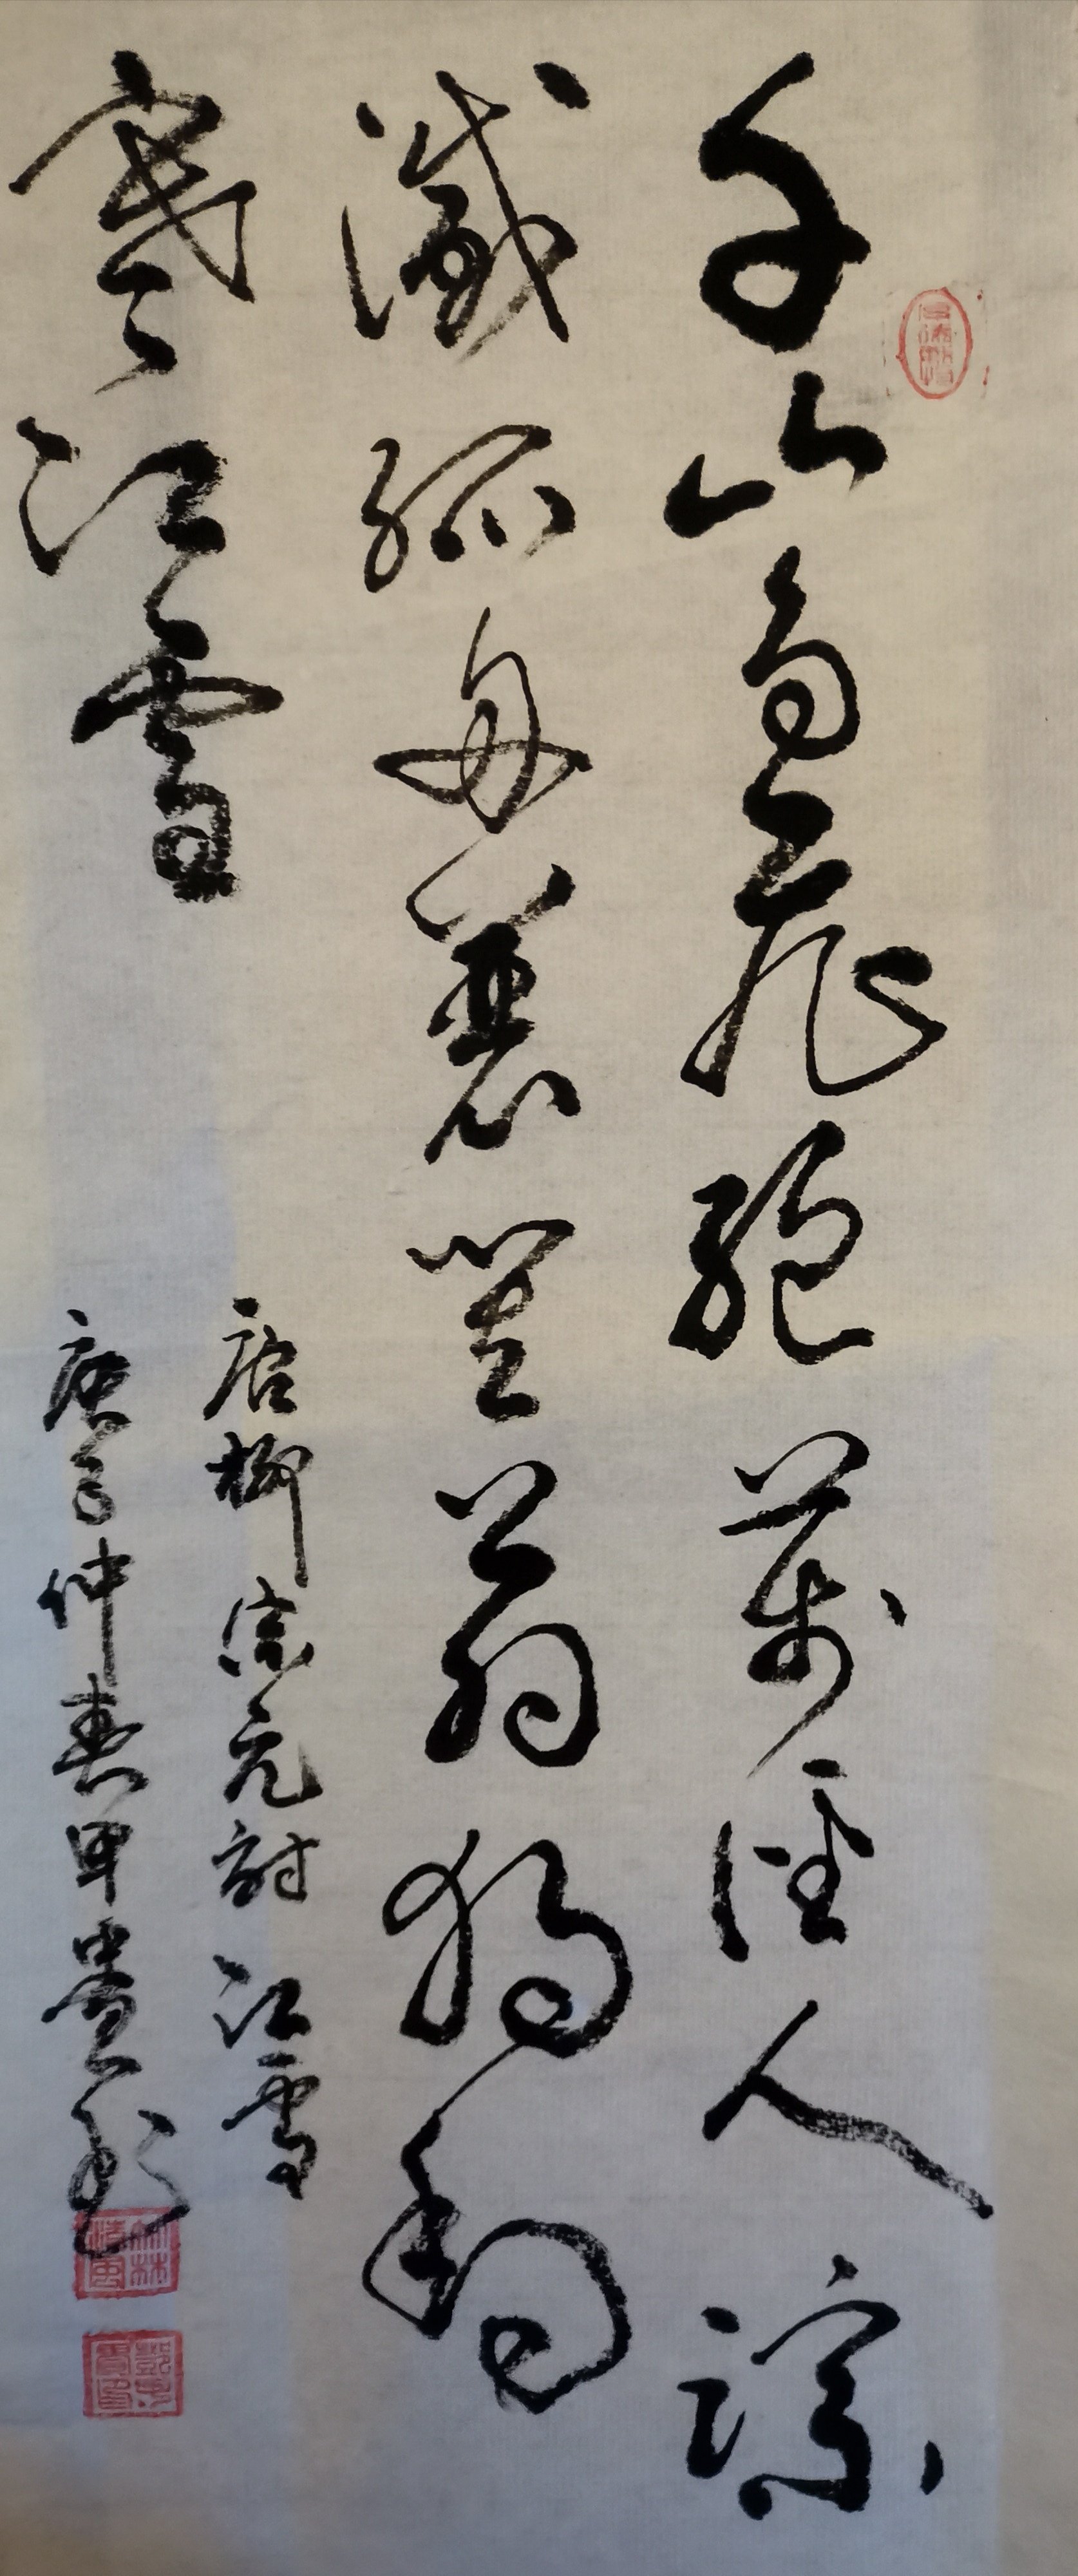 千山鳥飛絕萬徑人蹤
滅孤舟蓑笠翁獨釣
寒江雪
唐柳宗元詩江雪
庚子仲春